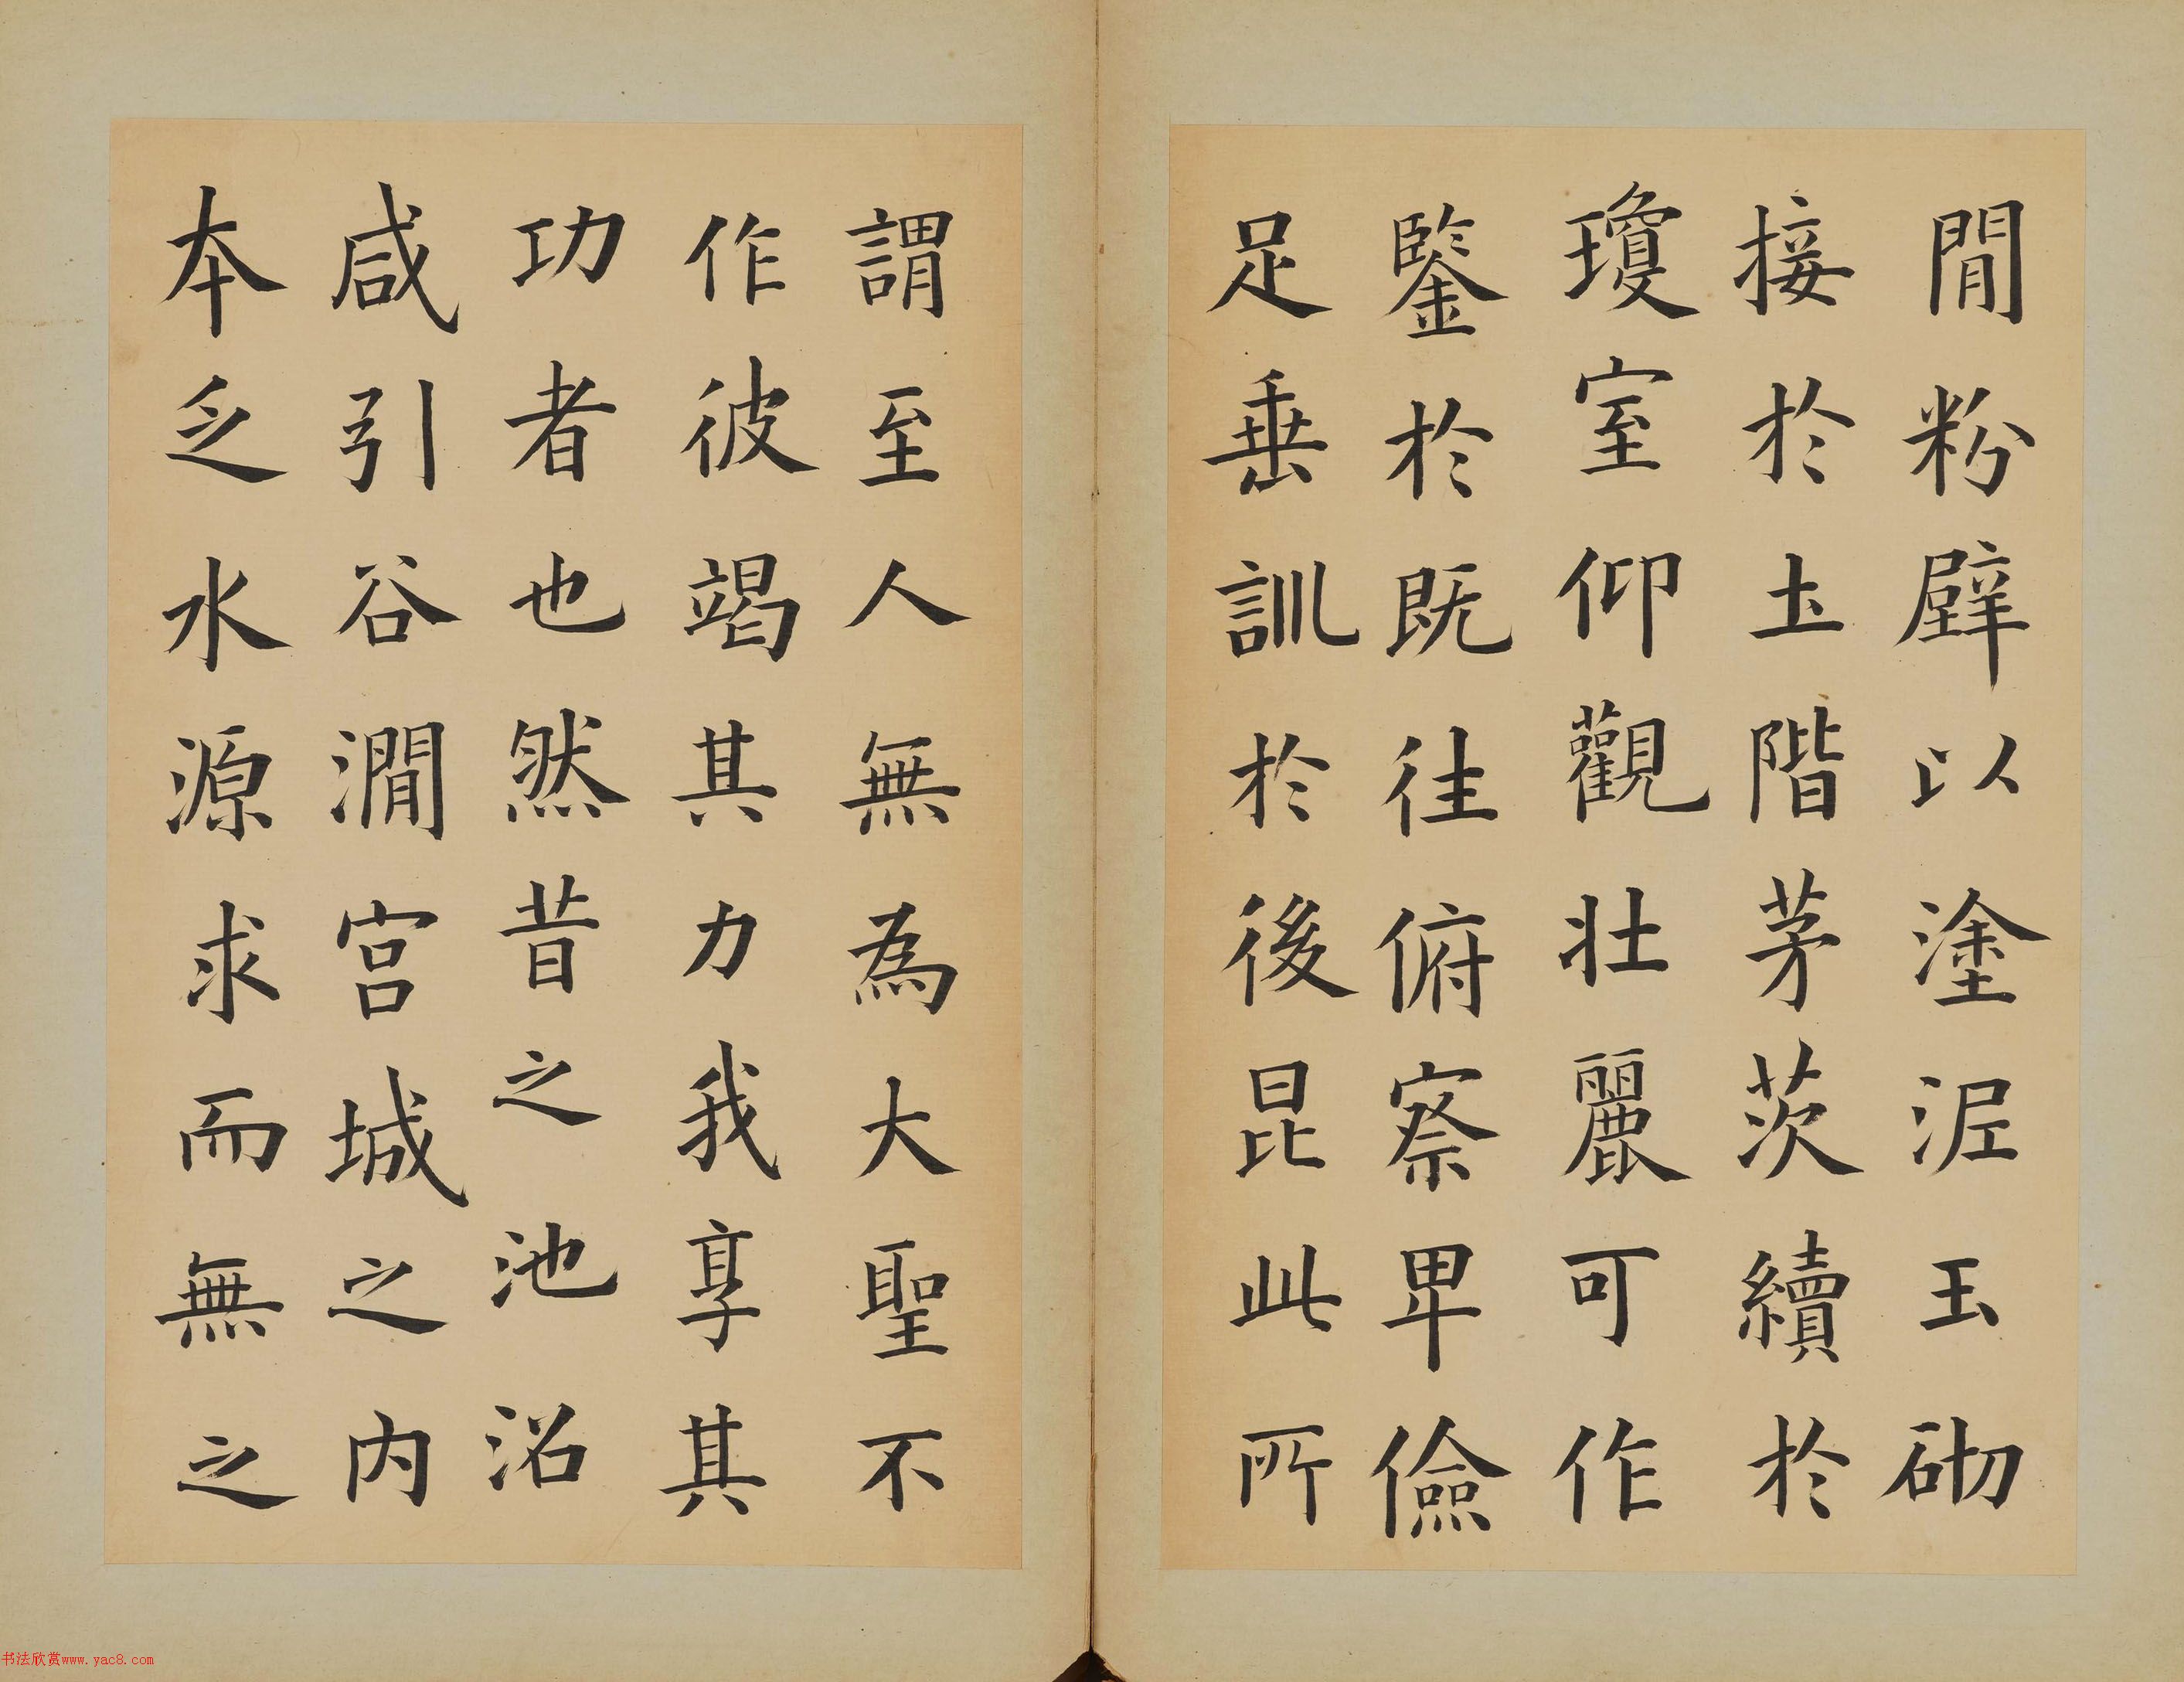 閒粉壁以塗泥玉砌
接於土階茅茨續於
瓊室仰觀壯麗可作
鑒於既往俯察卑儉
足垂訓於後昆此所
謂至人無為大聖不
作彼竭其力我享其
功者也然昔之池沼
咸引谷澗宮城之內
本乏水源求而無之
书法欣赏www.yac8.com